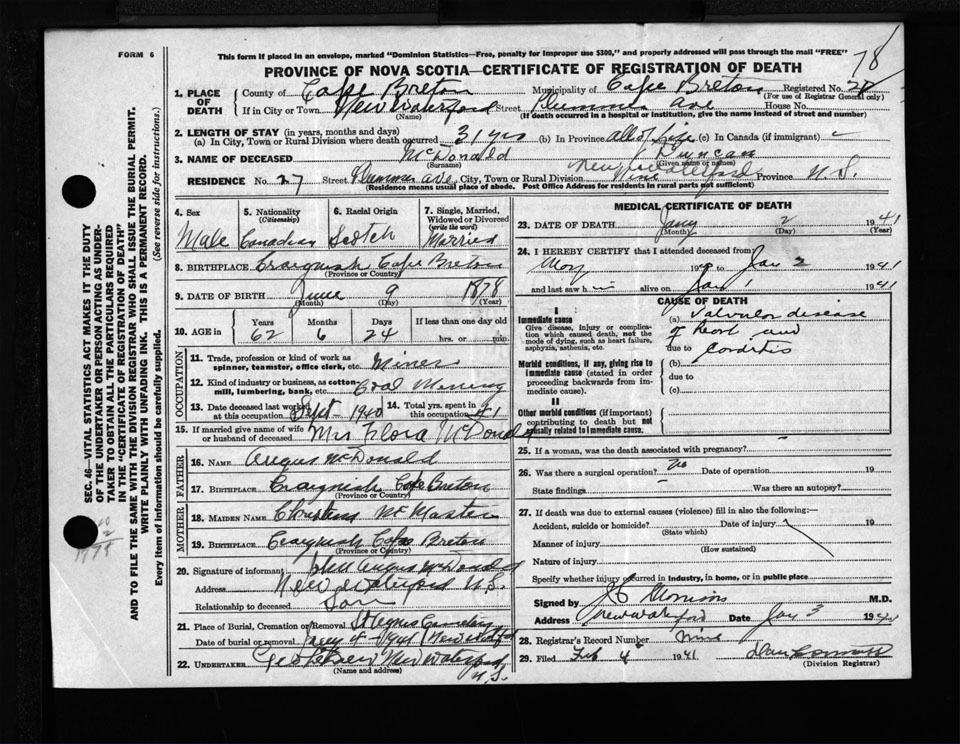 FORM 6
This form if placed in an envelope, marked "Dominion Statistics—Free, penalty for improper use $300," and properly addressed will pass through the mail "FREE"
78
PROVINCE OF NOVA SCOTIA—CERTIFICATE OF REGISTRATION OF DEATH
1. PLACE OF DEATH County of Cape Breton Municipality of Cape Breton Registered No.
(For use of Registrar General only)
If in City or Town New Waterford Street Plummer Ave House No.
(Name) (If death occurred in a hospital or institution, give the name instead of street and number)
2. LENGTH OF STAY (in years, months and days)
(a) In City, Town or Rural Division where death occurred 31 yrs (b) In Province all of life (c) In Canada (if immigrant)
3. NAME OF DECEASED McDonald Duncan
(Surname) (Given name or names)
RESIDENCE No. 27 Street Plummer Ave, City, Town or Rural Division New Waterford Province N.S.
(Residence means usual place of abode. Post Office Address for residents in rural parts not sufficient)
4. Sex Male
5. Nationality (Citizenship) Canadian
6. Racial Origin Scotch
7. Single, Married, Widowed or Divorced (write the word) Married
8. BIRTHPLACE Craignish Cape Breton
(Province or Country)
9. DATE OF BIRTH June 9 1878
(Month) (Day) (Year)
10. AGE in Years Months Days If less than one day old
62 6 24 hrs. or min.
OCCUPATION
11. Trade, profession or kind of work as spinner, teamster, office clerk, etc. Miner
12. Kind of industry or business, as cotton mill, lumbering, bank, etc. Coal Mining
13. Date deceased last worked at this occupation Sept - 1940 14. Total yrs. spent in this occupation 41
15. If married give name of wife or husband of deceased Mrs Flora McDonald
FATHER
16. NAME Angus McDonald
17. BIRTHPLACE Craignish Cape Breton
(Province or Country)
MOTHER
18. MAIDEN NAME McMaster
19. BIRTHPLACE Craignish Cape Breton
(Province or Country)
20. Signature of informant John Angus McDonald
Address New Waterford N.S.
Relationship to deceased Son
21. Place of Burial, Cremation or Removal St Agnes Cemetery
Date of burial or removal 4 - 1941 New Waterford
22. UNDERTAKER New Waterford
(Name and address) N.S.
MEDICAL CERTIFICATE OF DEATH
23. DATE OF DEATH Jany 2 1941
(Month) (Day) (Year)
24. I HEREBY CERTIFY that I attended deceased from
May 19 to Jan 2 1941
and last saw h im alive on Jan 1 1941
CAUSE OF DEATH
I
Immediate cause
Give disease, injury or complication which caused death, not the mode of dying, such as heart failure, asphyxia, asthenia, etc.
(a) Valvular disease
of heart and
due to Carditis
Morbid conditions, if any, giving rise to immediate cause (stated in order proceeding backwards from immediate cause).
(b)
due to
(c)
II
Other morbid conditions (if important) contributing to death but not causally related to immediate cause.
25. If a woman, was the death associated with pregnancy?
26. Was there a surgical operation? No Date of operation 19
State findings Was there an autopsy?
27. If death was due to external causes (violence) fill in also the following:
Accident, suicide or homicide? Date of injury 19
(State which)
Manner of injury
(How sustained)
Nature of injury
Specify whether injury occurred in industry, in home, or in public place
Signed by Morrison M.D.
Address New Waterford Date Jan 3
28. Registrar's Record Number Nine
29. Filed Feb 4 1941
(Division Registrar)
SEC. 46—VITAL STATISTICS ACT MAKES IT THE DUTY
OF THE UNDERTAKER OR PERSON ACTING AS UNDER-
TAKER TO OBTAIN ALL THE PARTICULARS REQUIRED
IN THE "CERTIFICATE OF REGISTRATION OF DEATH"
AND TO FILE THE SAME WITH THE DIVISION REGISTRAR WHO SHALL ISSUE THE BURIAL PERMIT.
WRITE PLAINLY WITH UNFADING INK. THIS IS A PERMANENT RECORD.
Every item of information should be carefully supplied. (See reverse side for instructions.)